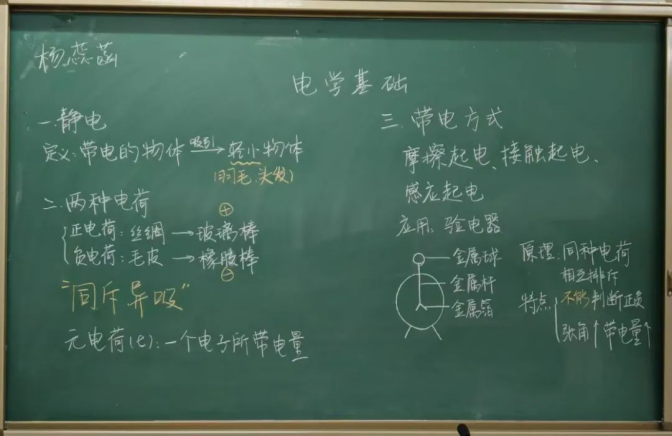 杨蕊菡
电学基础
一.静电
定义:带电的物体 吸引→ 轻小物体
(羽毛、头发)
二.两种电荷
⊕
正电荷:丝绸→玻璃棒
负电荷:毛皮→橡胶棒
⊖
"同斥异吸"
元电荷(e):一个电子所带电量
三.带电方式
摩擦起电、接触起电、
感应起电
应用:验电器
金属球
金属杆
金属箔
原理:同种电荷
相互排斥
特点:{不能判断正负
张角↑带电量↑